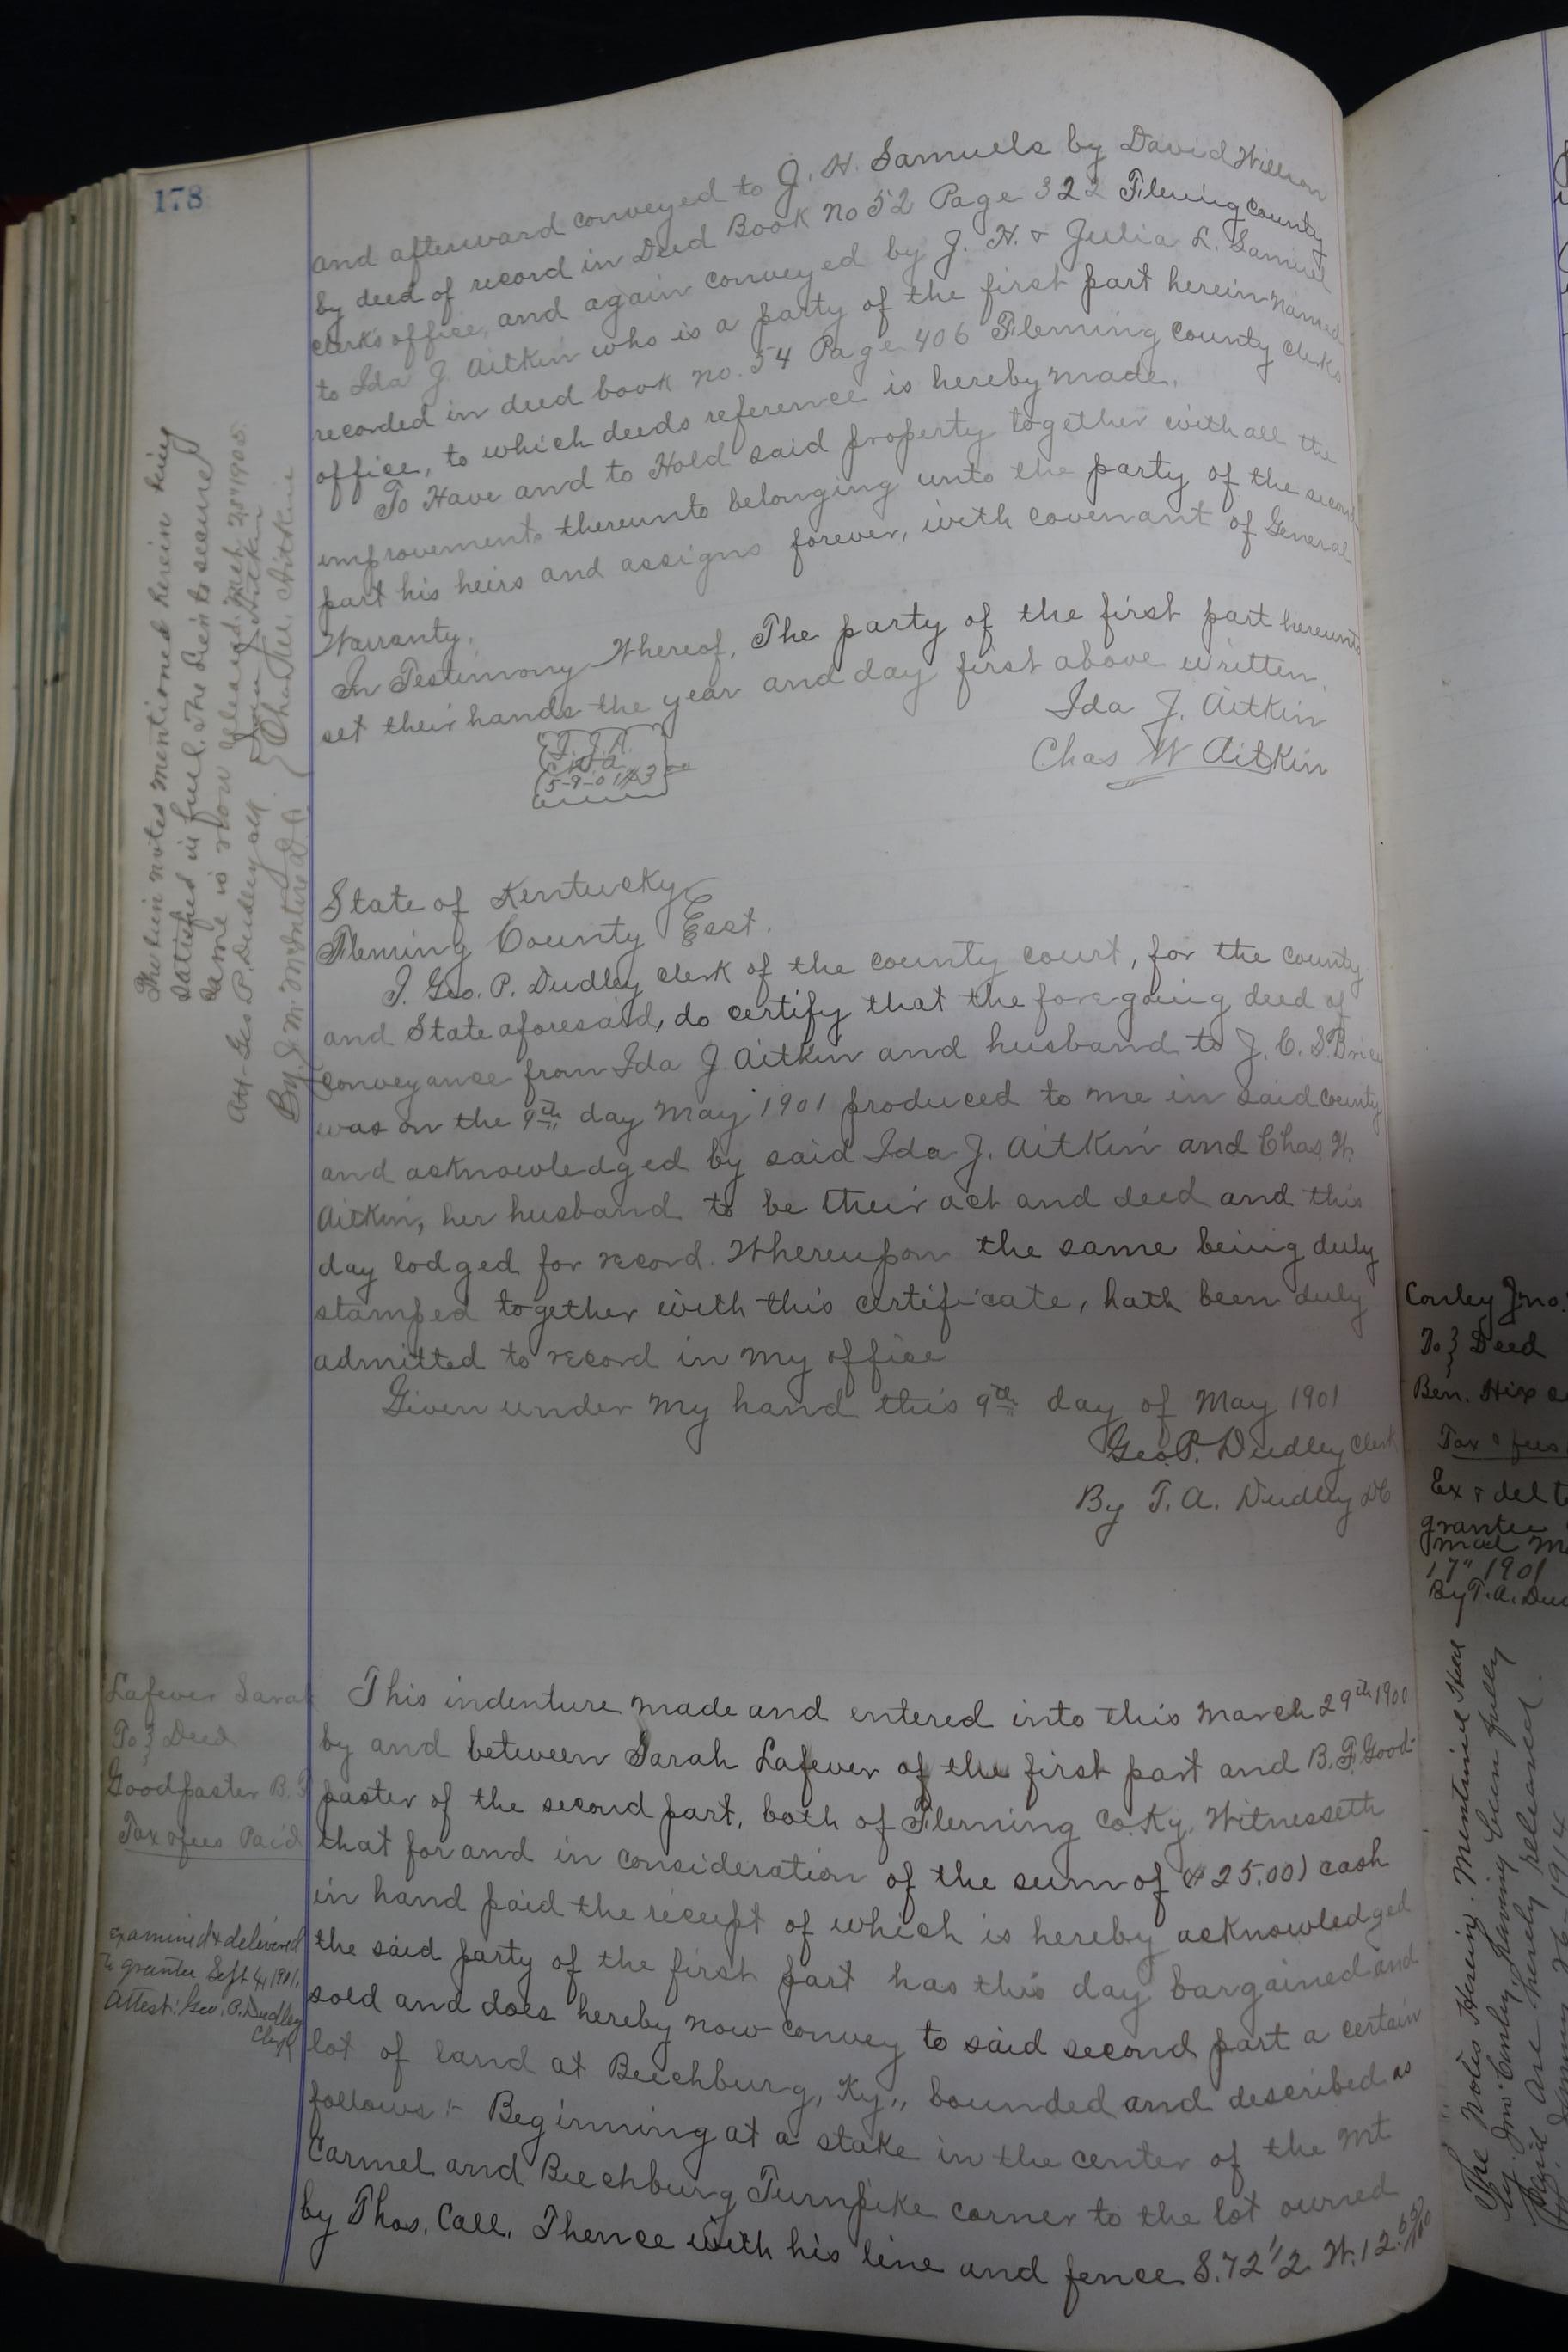 178
and afterward conveyed to J. H. Samuels by David Wilson
by deed of record in Deed Book no 52 Page 322 Fleming County
clerks office, and again conveyed by J. H. & Julia L. Samuel
to Ida J. Aitkin who is a party of the first part herein named
recorded in deed book no. 54 Page 406 Fleming County Clerks
office, to which deeds reference is hereby made.
To Have and to Hold said property together with all the
improvements thereunto belonging unto the party of the second
part his heirs and assigns forever, with covenant of General
Warranty.
In Testimony Whereof, The party of the first part hereunto
set their hands the year and day first above written.
Ida J. Aitkin
Chas W Aitkin
I. J. A.
C. W. A.
5-9-01
The lien notes mentioned herein being
satisfied in full. The lien to secure
same is now released. Mch 28" 1905.
Att- Geo P. Dudley clk
By J. M. McIntire D.C.
Ida J. Aitkin
Chas. W. Aitkin
State of Kentucky
Fleming County Sct.
I. Geo. P. Dudley clerk of the county court, for the county
and State aforesaid, do certify that the foregoing deed of
conveyance from Ida J. Aitkin and husband to J. C. S. Brice
was on the 9th day May 1901 produced to me in said county
and acknowledged by said Ida J. Aitkin and Chas. W.
Aitkin, her husband to be their act and deed and this
day lodged for record. Whereupon the same being duly
stamped together with this certificate, hath been duly
admitted to record in my office
Given under my hand this 9th day of May 1901
Geo. P. Dudley Clerk
By T. A. Dudley DC
Lafever Sarah
To } Deed
Goodpaster B. F
Tax & fees Paid
Examined & delivered
To grantee Sept 4, 1901.
Attest: Geo. P. Dudley
Clerk
This indenture made and entered into this March 29th 1900
by and between Sarah Lafever of the first part and B. F. Good-
paster of the second part, both of Fleming Co. Ky. Witnesseth
that for and in consideration of the sum of ($25.00) cash
in hand paid the receipt of which is hereby acknowledged
the said party of the first part has this day bargained and
sold and does hereby now convey to said second part a certain
lot of land at Beechburg, Ky., bounded and described as
follows:- Beginning at a stake in the center of the Mt
Carmel and Beechburg Turnpike corner to the lot owned
by Thos. Call. Thence with his line and fence S. 72 1/2 W. 12
Conley Jno.
To } Deed
Ben. Hix
Tax & fees
Ex & del to
grantee
17" 1901
By T. A. Dud
The Notes Herein Mentioned
by Jno. Conley Having been fully
Paid Are hereby released.